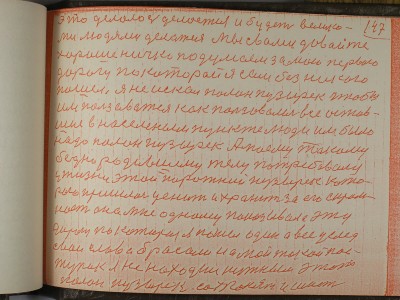 147
это делалось делается и будет велико-
ми людями делатся Мысвами давайте
хорошенечко подумаем замою первою
дорогу по которай я сам без никого
пошел. я не искал полон пузырек чтобы
им ползоватся как ползовались все остав-
шия в населеном пункте люди им было
надо полон пузырек А моему такому
бедно родившому телу потребовалу
жизни этой порожний пузырек кото-
рого пришлось ценить и хранить за его
она мне одному показывала эту
дорогу по которой я пошел один а все у след
свои слова бросали на мой такой по-
ступок я не находил нужным этот
полон пузырек